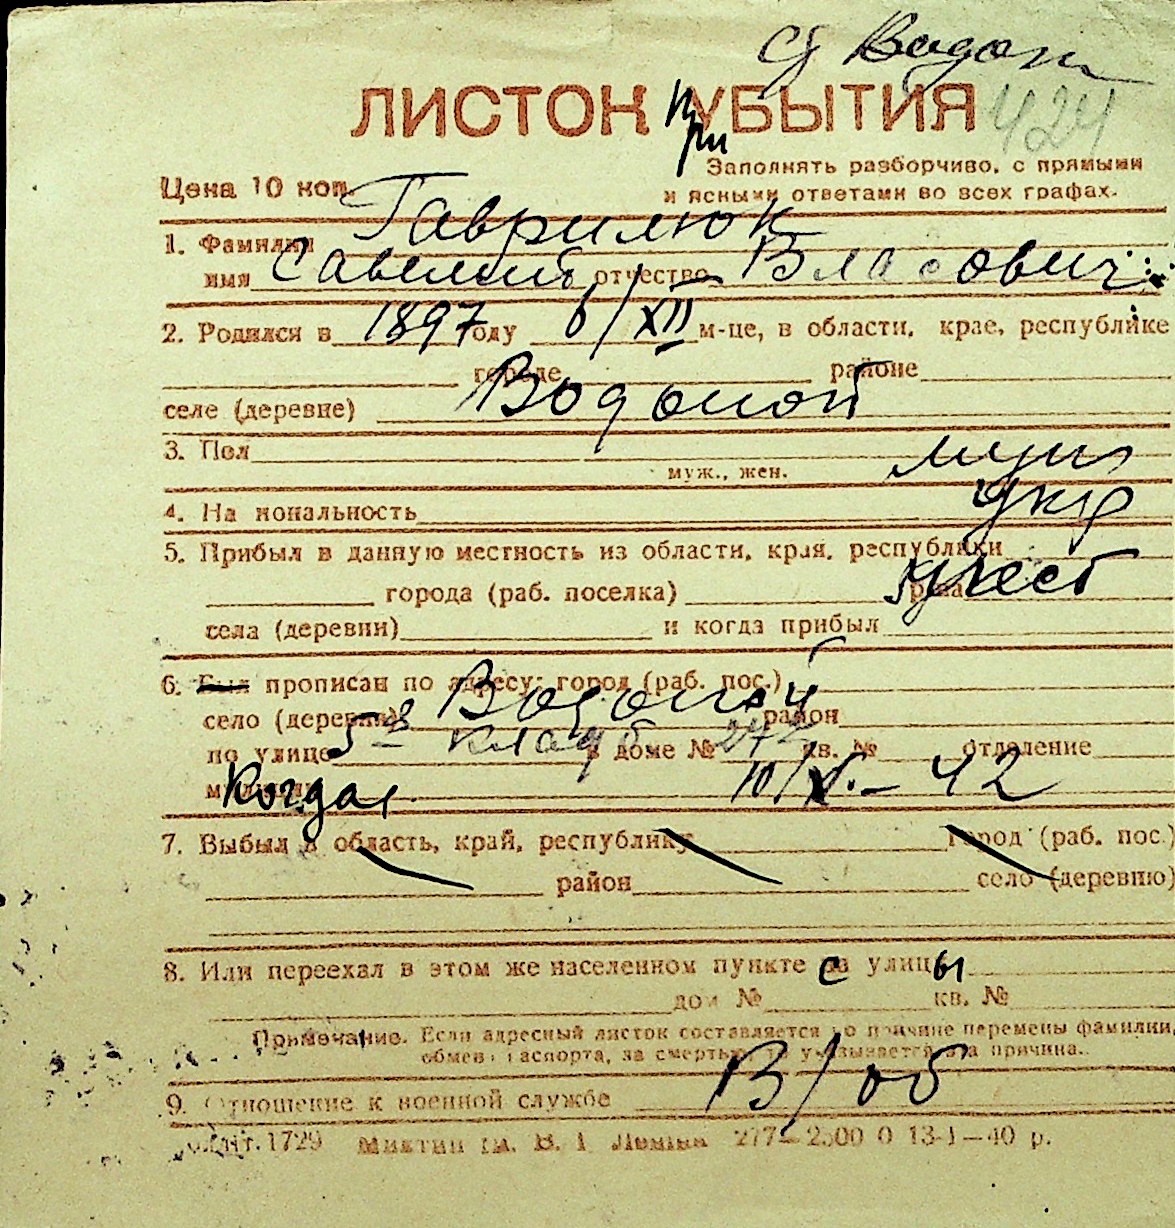 с/ Водоп
424
ЛИСТОК При УБЫТИЯ
Заполнять разборчиво, с прямыми
Цена 10 коп.
и ясными ответами во всех графах.
1. Фамилия Гаврилюк
имя Савелий отчество Власович
2. Родился в 1897 году 6/XII м-це, в области, крае, республике
городе районе
селе (деревне) Водопой
3. Пол муж
муж., жен.
4. На иональность укр
5. Прибыл в данную местность из области, края, республики
города (раб. поселка) р-на урест
села (деревни) и когда прибыл
6. Был прописан по адресу: город (раб. пос.)
село (деревня) Водопой район
по улице 5-я в доме № 242 кв. № отделение
милиции Когда 10/V.–42
7. Выбыл в область, край, республику город (раб. пос.)
район село (деревню)
8. Или переехал в этом же населенном пункте с улицы
дом № кв. №
Примечание. Если адресный листок составляется по причине перемены фамилии,
обмена паспорта, за смертью, то указывается эта причина.
9. Отношение к военной службе В/об
1729 277–2500 0 13-1–40 р.